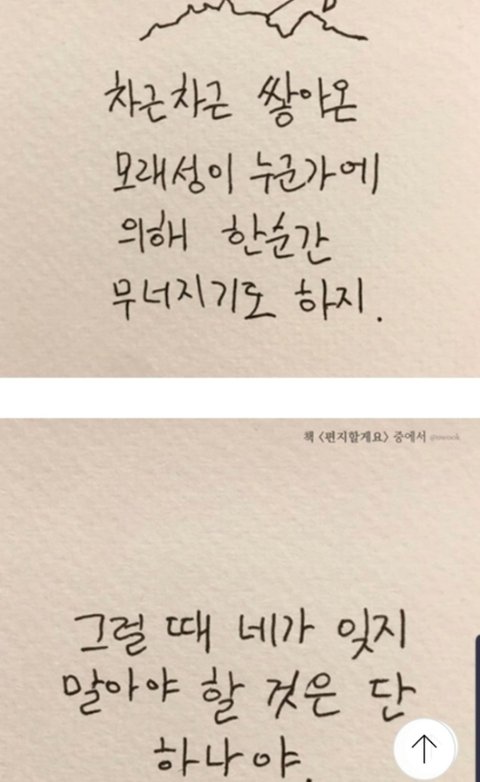 차근차근 쌓아온
모래성이 누군가에
의해 한순간
무너지기도 하지.
책 <편지할게요> 중에서
그럴 때 네가 잊지
말아야 할 것은 단
하나야.